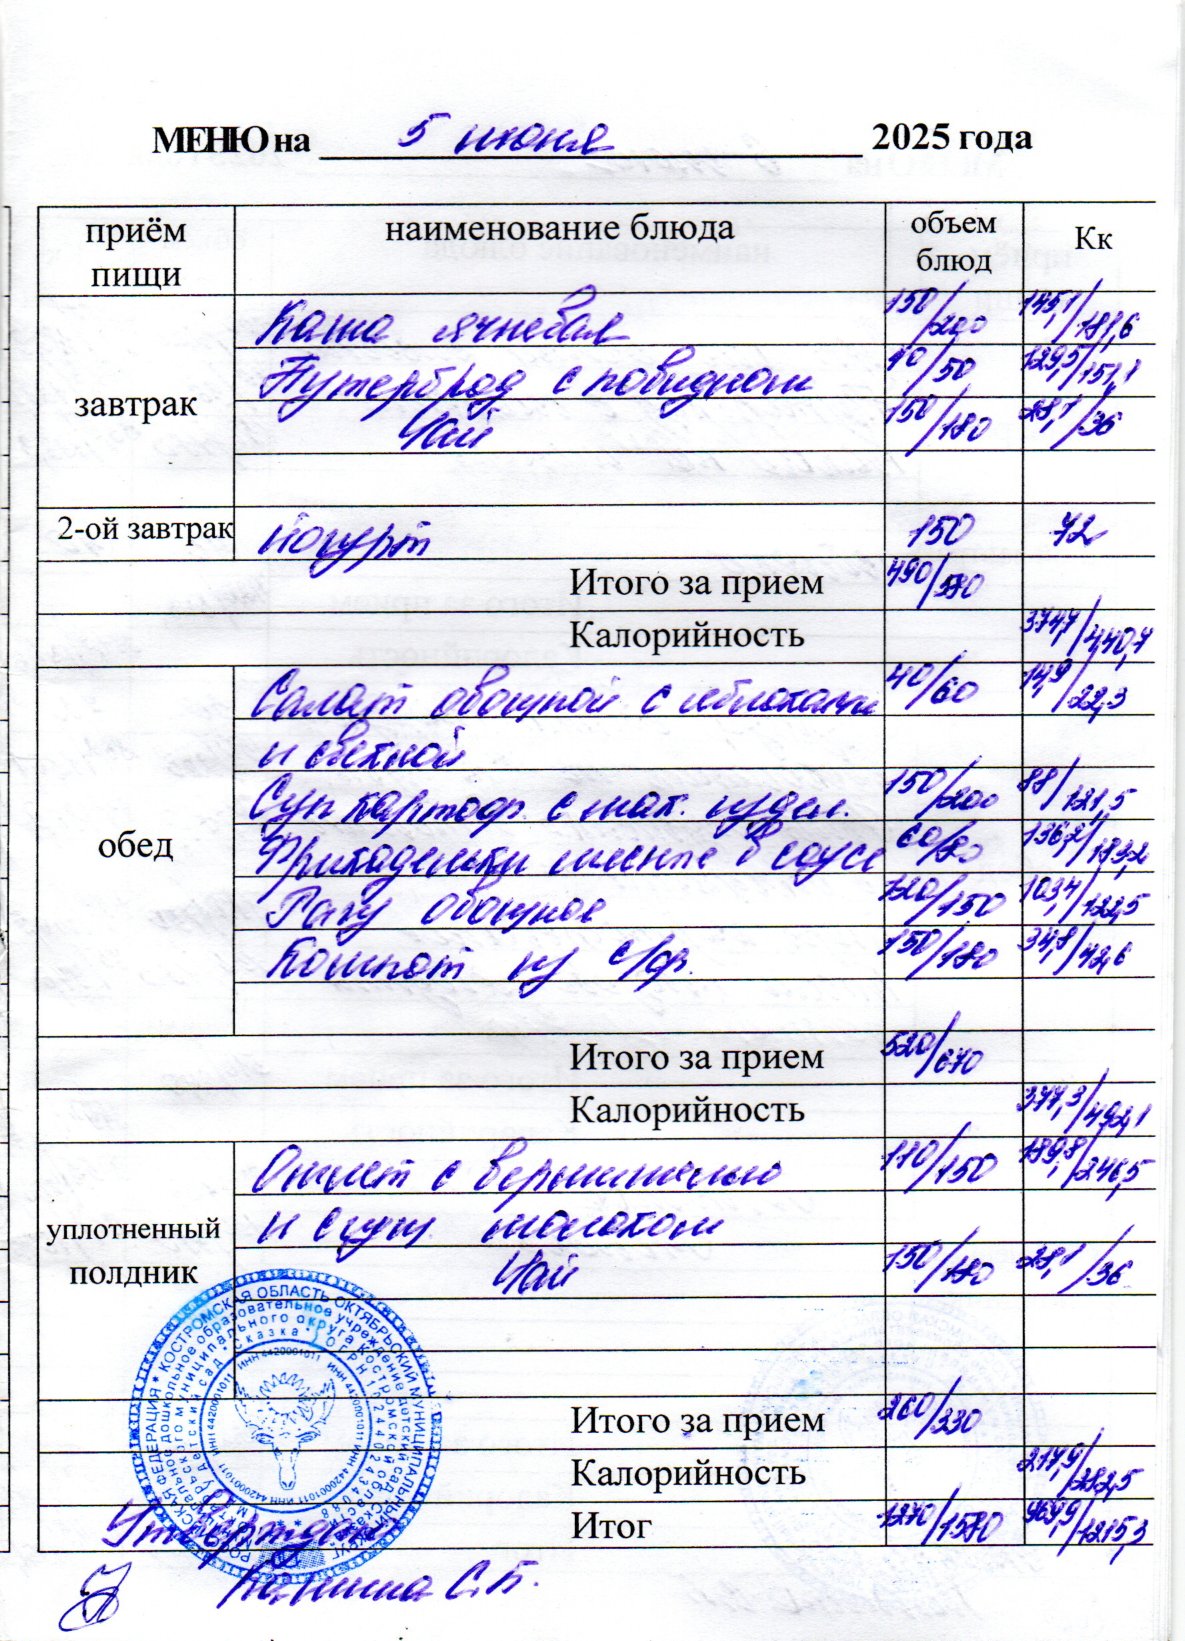 МЕНЮ на 5 июня 2025 года
приём пищи наименование блюда объем блюд Кк
завтрак
Каша ячневая 150/200 145,1/181,6
Бутерброд с повидлом 40/50 129,5/151,1
Чай 150/180 28,1/36
2-ой завтрак Йогурт 150 72
Итого за прием 490/580
Калорийность 374,7/440,7
обед
Салат овощной с яблоками 40/60 14,9/22,3
и свеклой
Суп картоф. с мак. издел. 150/200 88/121,5
Фрикадельки мясные в соусе 60/80 136,2/183,2
Рагу овощное 120/150 103,4/122,5
Компот из с/ф. 150/180 34,8/42,6
Итого за прием 520/670
Калорийность 377,3/492,1
уплотненный полдник
Омлет с вермишелью 110/150 189,8/246,5
и сгущ. молоком
Чай 150/180 28,1/36
Итого за прием 260/330
Калорийность 217,9/282,5
Итог 1270/1580 969,9/1215,3
РОССИЙСКАЯ ФЕДЕРАЦИЯ * КОСТРОМСКАЯ ОБЛАСТЬ ОКТЯБРЬСКИЙ МУНИЦИПАЛЬНЫЙ ОКРУГ
дошкольное образовательное учреждение детский сад "Сказка"
Октябрьского муниципального округа Костромской области
детский сад "Сказка" * ОГРН 1024402434088
ИНН 4420001011 ИНН 4420001011 ИНН 4420001011 ИНН 4420001011
Утверждаю
С.Б.